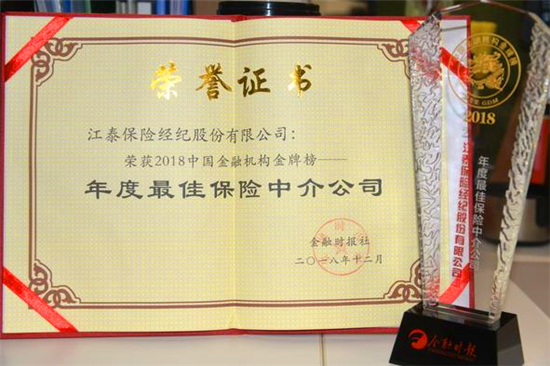 荣誉证书
江泰保险经纪股份有限公司：
荣获2018中国金融机构金牌榜——
年度最佳保险中介公司
金融时报社
二〇一八年十二月
2018
年度最佳保险中介公司
江泰保险经纪股份有限公司
金融时报